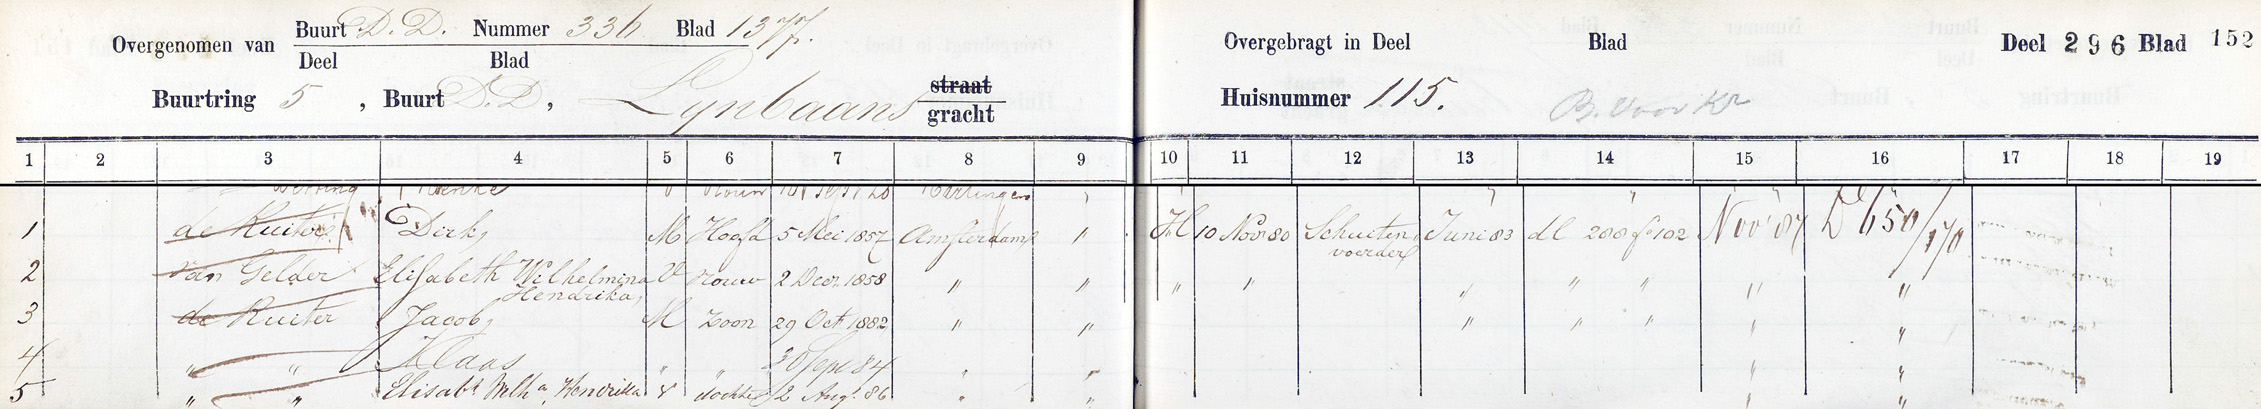 Overgenomen van Buurt D.D. Nummer 336 Blad 1377.
Deel Blad
Buurtring 5, Buurt D.D, Lynbaans straat
gracht
Overgebragt in Deel Blad Deel 296 Blad 152
Huisnummer 115.
1 2 3 4 5 6 7 8 9 10 11 12 13 14 15 16 17 18 19
Wenke V Vrouw Harlingen
1 de Ruiter Dirk, M Hoofd 5 Mei 1857 Amsterdam " H 10 Nov 80 Schuiten Juni 83 dl 208 fo 102 Nov 87 Dl 650/170
voerder
2 van Gelder Elisabeth Wilhelmina V vrouw 2 Decr. 1858 " " " " " " " " "
Hendrika,
3 de Ruiter Jacob, M Zoon 29 Oct. 1882 " " " " " " "
4 " " Klaas " " 30 Sept 84 " " " "
5 " " Elisabt. Wilha. Hendrika V dochter 2 Aug. 86 " " " "